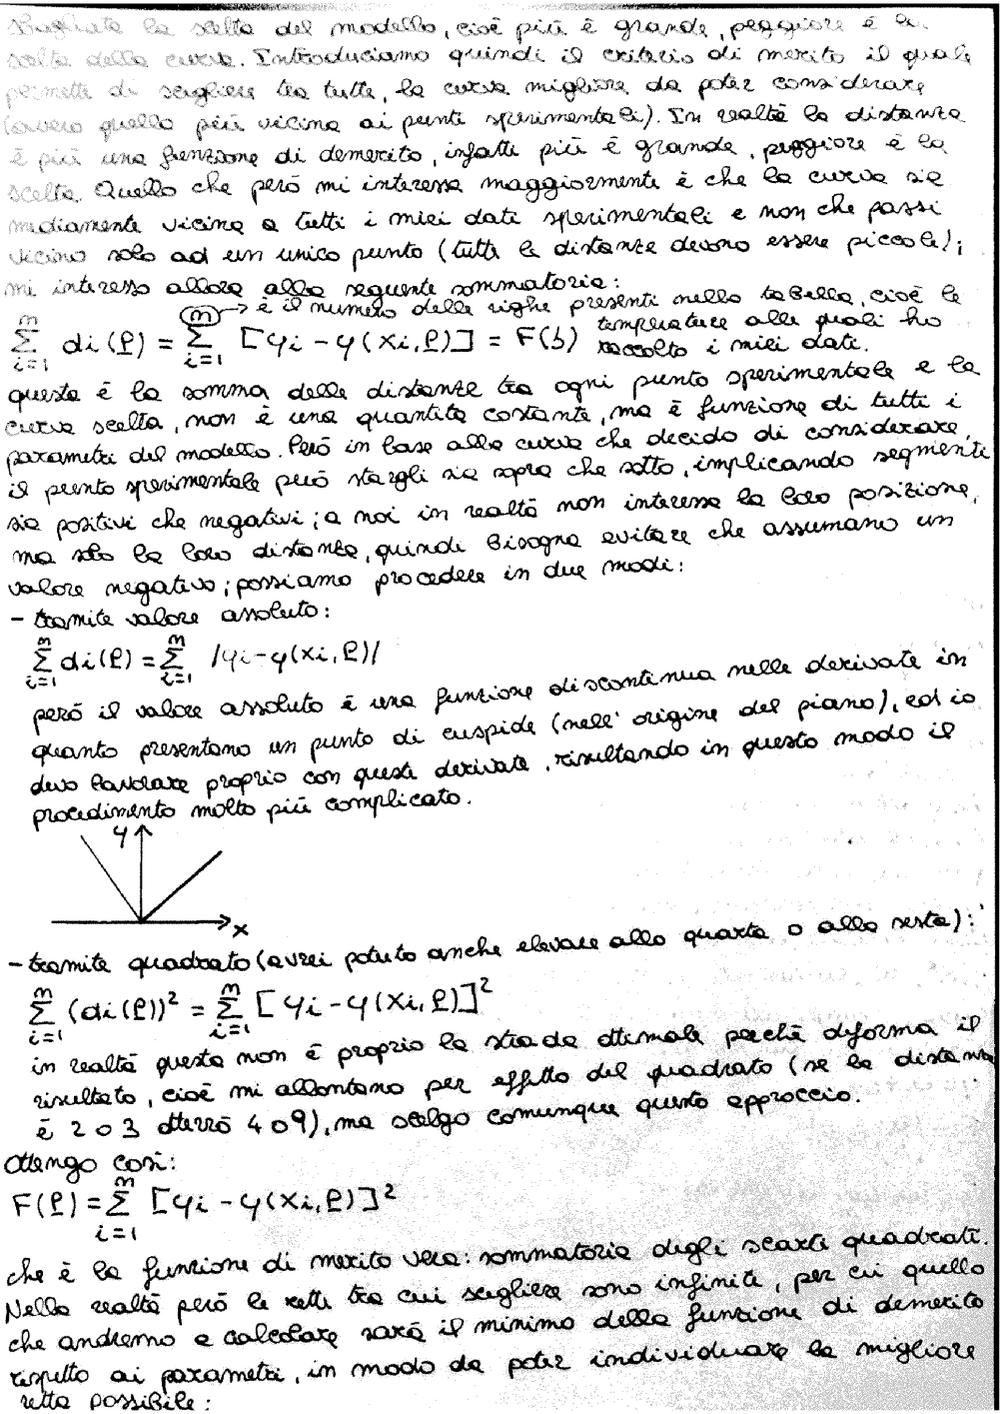 sbagliata la scelta del modello, cioè più è grande, peggiore è la
scelta della curva. Introduciamo quindi il criterio di merito il quale
permette di scegliere tra tutte, la curva migliore da poter considerare
(ovvero quella più vicina ai punti sperimentali). In realtà la distanza
è più una funzione di demerito, infatti più è grande, peggiore è la
scelta. Quello che però mi interessa maggiormente è che la curva sia
mediamente vicina a tutti i miei dati sperimentali e non che passi
vicino solo ad un unico punto (tutte le distanze devono essere piccole);
mi interesso allora alla seguente sommatoria:
m → è il numero delle righe presenti nella tabella, cioè le
temperature alle quali ho
raccolto i miei dati.
∑_{i=1}^{m} di(P) = ∑_{i=1}^{m} [yi - y(xi,P)] = F(b)
questa è la somma delle distanze tra ogni punto sperimentale e la
curva scelta, non è una quantità costante, ma è funzione di tutti i
parametri del modello. Però in base alla curva che decido di considerare,
il punto sperimentale può stargli sia sopra che sotto, implicando segmenti
sia positivi che negativi; a noi in realtà non interessa la loro posizione,
ma solo la loro distanza, quindi bisogna evitare che assumano un
valore negativo; possiamo procedere in due modi:
- tramite valore assoluto:
∑_{i=1}^{m} di(P) = ∑_{i=1}^{m} |yi - y(xi,P)|
però il valore assoluto è una funzione discontinua nelle derivate in
quanto presentano un punto di cuspide (nell'origine del piano), ed io
devo lavorare proprio con queste derivate, risultando in questo modo il
procedimento molto più complicato.
y
x
- tramite quadrato (avrei potuto anche elevare alla quarta o alla sesta):
∑_{i=1}^{m} (di(P))² = ∑_{i=1}^{m} [yi - y(xi,P)]²
in realtà questa non è proprio la strada ottimale perchè deforma il
risultato, cioè mi allontano per effetto del quadrato (se la distanza
è 2 o 3 otterrò 4 o 9), ma scelgo comunque questo approccio.
Ottengo così:
F(P) = ∑_{i=1}^{m} [yi - y(xi,P)]²
che è la funzione di merito vera: sommatoria degli scarti quadrati.
Nella realtà però le rette tra cui scegliere sono infinite, per cui quello
che andremo a calcolare sarà il minimo della funzione di demerito
rispetto ai parametri, in modo da poter individuare la migliore
retta possibile: